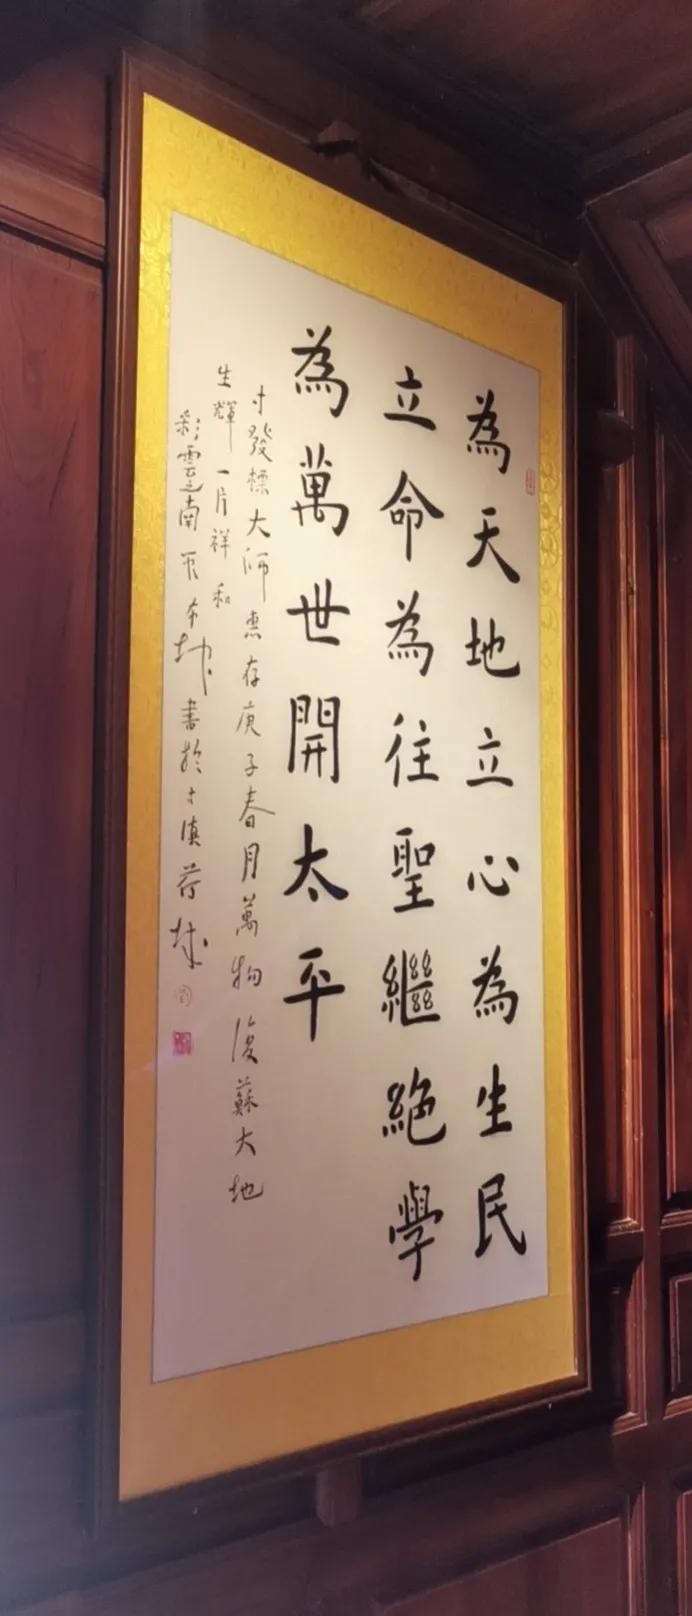 為天地立心為生民
立命為往聖繼絕學
為萬世開太平
寸發標大師惠存庚子春月萬物復蘇大地
生輝一片祥和
彩雲之南 書於古滇 城